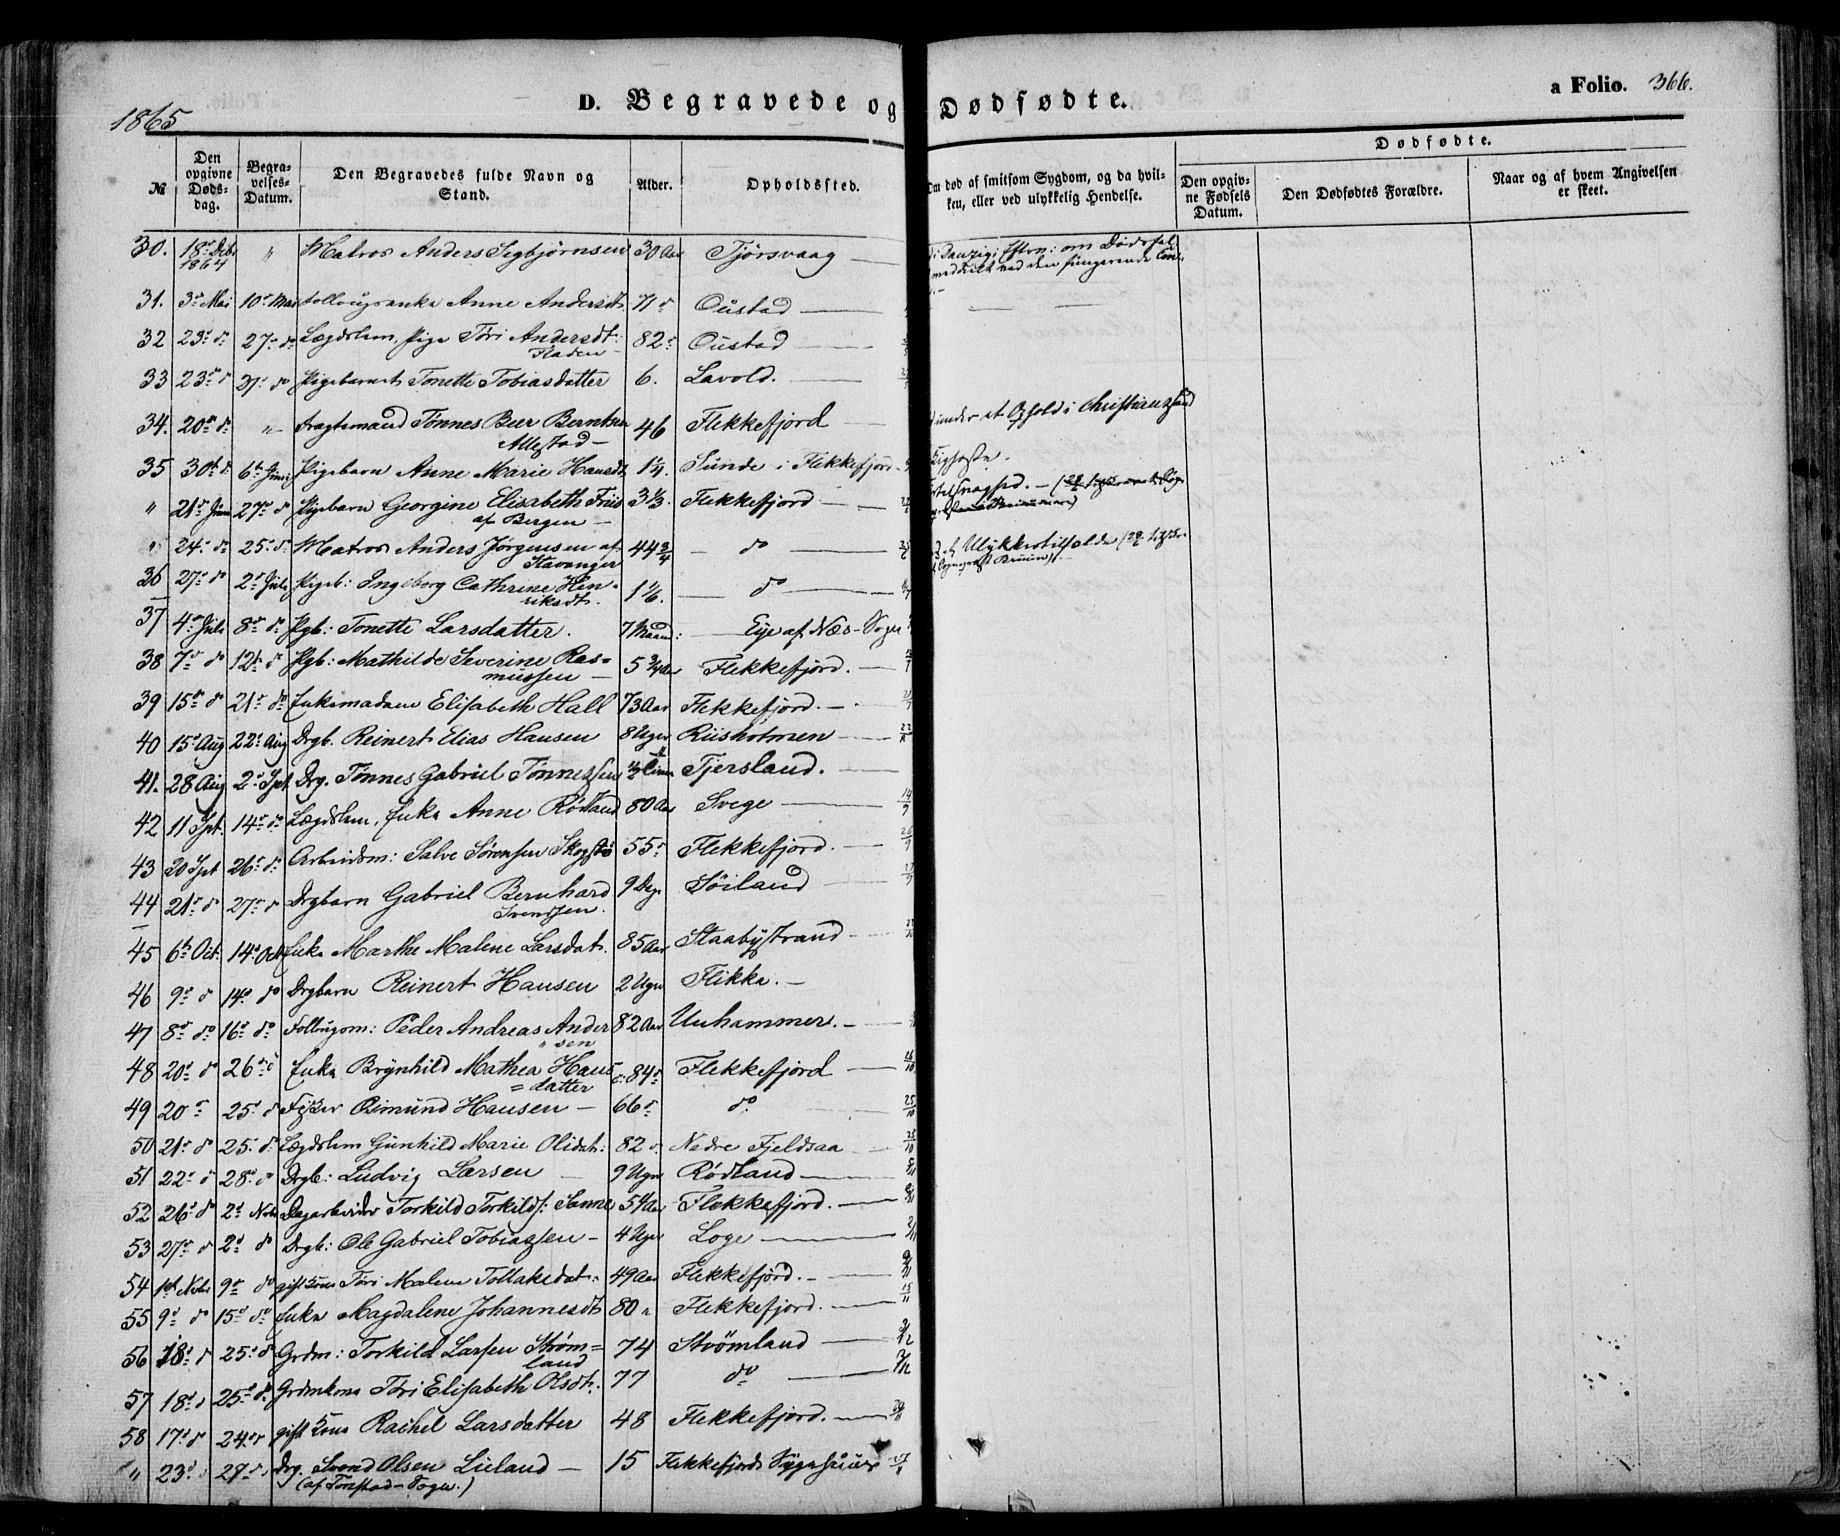 1865
D. Begravede og Dødfødte.
a Folio. 366.
№
Den opgivne Dødsdag.
Begravelses-Datum.
Den Begravedes fulde Navn og Stand.
Alder.
Opholdssted.
Om død af smitsom Sygdom, og da hvilken, eller ved ulykkelig Hendelse.
Dødfødte.
Den opgivne Fødsels Datum.
Den Dødfødtes Forældre.
Naar og af hvem Angivelsen er skeet.
30. 18de Debr 1864 " Matros Anders Sigbjørnsen 30 Aar Tjørsvaag
i Danzig; Eftrn: om Dødsfal meddelt ved den fungerende
31. 3de Mai 10de Mai Anne Andersdt 71 do Oustad
32 23de do 27de do Lægdslem, Pige Tori Andersdt: Fladen 82 do Oustad
33 23de do 27de do Pigebarnet Tonette Tobiasdatter 6. Lavold.
34. 20de do " Fragtemand Tønnes Beer Berntsen Allestad 46 Flekkefjord
under et Ophold i Christianssand
35 30te do 6te Juni Pigebarn Anne Marie Hansdt Sunde i Flekkefjord
" 21de Juni 27de do Pigebarn Georgine Elisabeth Friis af Bergen 3 1/3. Flekkefjord
" 24de do 25de do Matros Anders Jørgensen af Stavanger 44 3/4 do
Ulykkestilfælde
36 27de do 2de Juli Pigeb: Ingeborg Cathrine Henriksdt. 1 1/6. do
37 4de Juli 8de do Pgb: Tonette Larsdatter. 7 Maan: Eye af Næs-Sogn
38 7de do 12te do Pgb: Mathilde Severine Rasmussen 5 3/4 Aar Flekkefjord.
39 15de do 21de do Enkemadam Elisabeth Hall 73 Aar Flekkefjord.
40 15de Aug 22de Aug Drgb. Reinert Elias Hansen 8 Uger Riisholmen
41. 28 Aug 2de Spt Drg. Tønnes Gabriel Tønnessen 1/2 Tjersland.
42 11 Spt. 14de do Lægdslem, Enke Anne Rødland 80 Aar Svege
43 20 Spt 26de do Arbeidsm: Salve Sørensen Skogstø 55 do Flekkefjord.
44 21de do 27de do Drgbarn Gabriel Bernhard Svendsen. 9 Dge Søiland
45 6te Oct. 14de Oct Enke Marthe Malene Larsdat. 85 Aar Staabystrand
46 9de do 14de do Drgbarn Reinert Hansen 2 Uger Flikka.
47 8de do 16de do Peder Andreas Andersen 82 Aar Unhammer.
48 20de do 26de do Enke Brynhild Mathea Hansdatter 84 do Flekkefjord
49 20de 25de do Fisker Osmund Hansen 66 do do
50 21de do 25de do Lægdslem Gunhild Marie Olsdat: 82 do Nedre Fjeldsaa
51 22de do 28de do Drgb: Ludvig Larsen 9 Uger Rødland
52 26de do 2de Novbr Dagarbeider Torkild Torkilds: Sanne 54 Aar Flekkefjord.
53 27de do 2de do Drgb: Ole Gabriel Tobiassen 4 Uger Loge
54 1ste Novbr 9de do gift Kone Tori Malene Tollaksdat: 49 Aar Flekkefjord.
55 9de do 15de do Enke Magdalene Johannesdt 80 " Flekkefjord.
56 18de do 25de do Grdm: Torkild Larsen Strømland 74 Strömland
57 18de do 25de do Grdmkone Tori Elisabeth Olsdt. 77 do
58 17de do 24de do gift Kone Rachel Larsdatter 48 Flekkefjord.
" 23de do 27de do Drg. Svend Olsen Lieland 15 Flekkefjords Sygehuus
(af Tonstad-Sogn.)